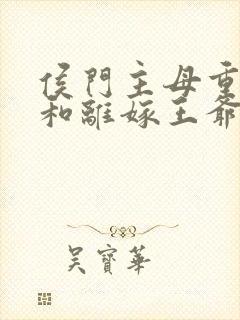 侯門主母重
和離嫁王爺
吳寶華